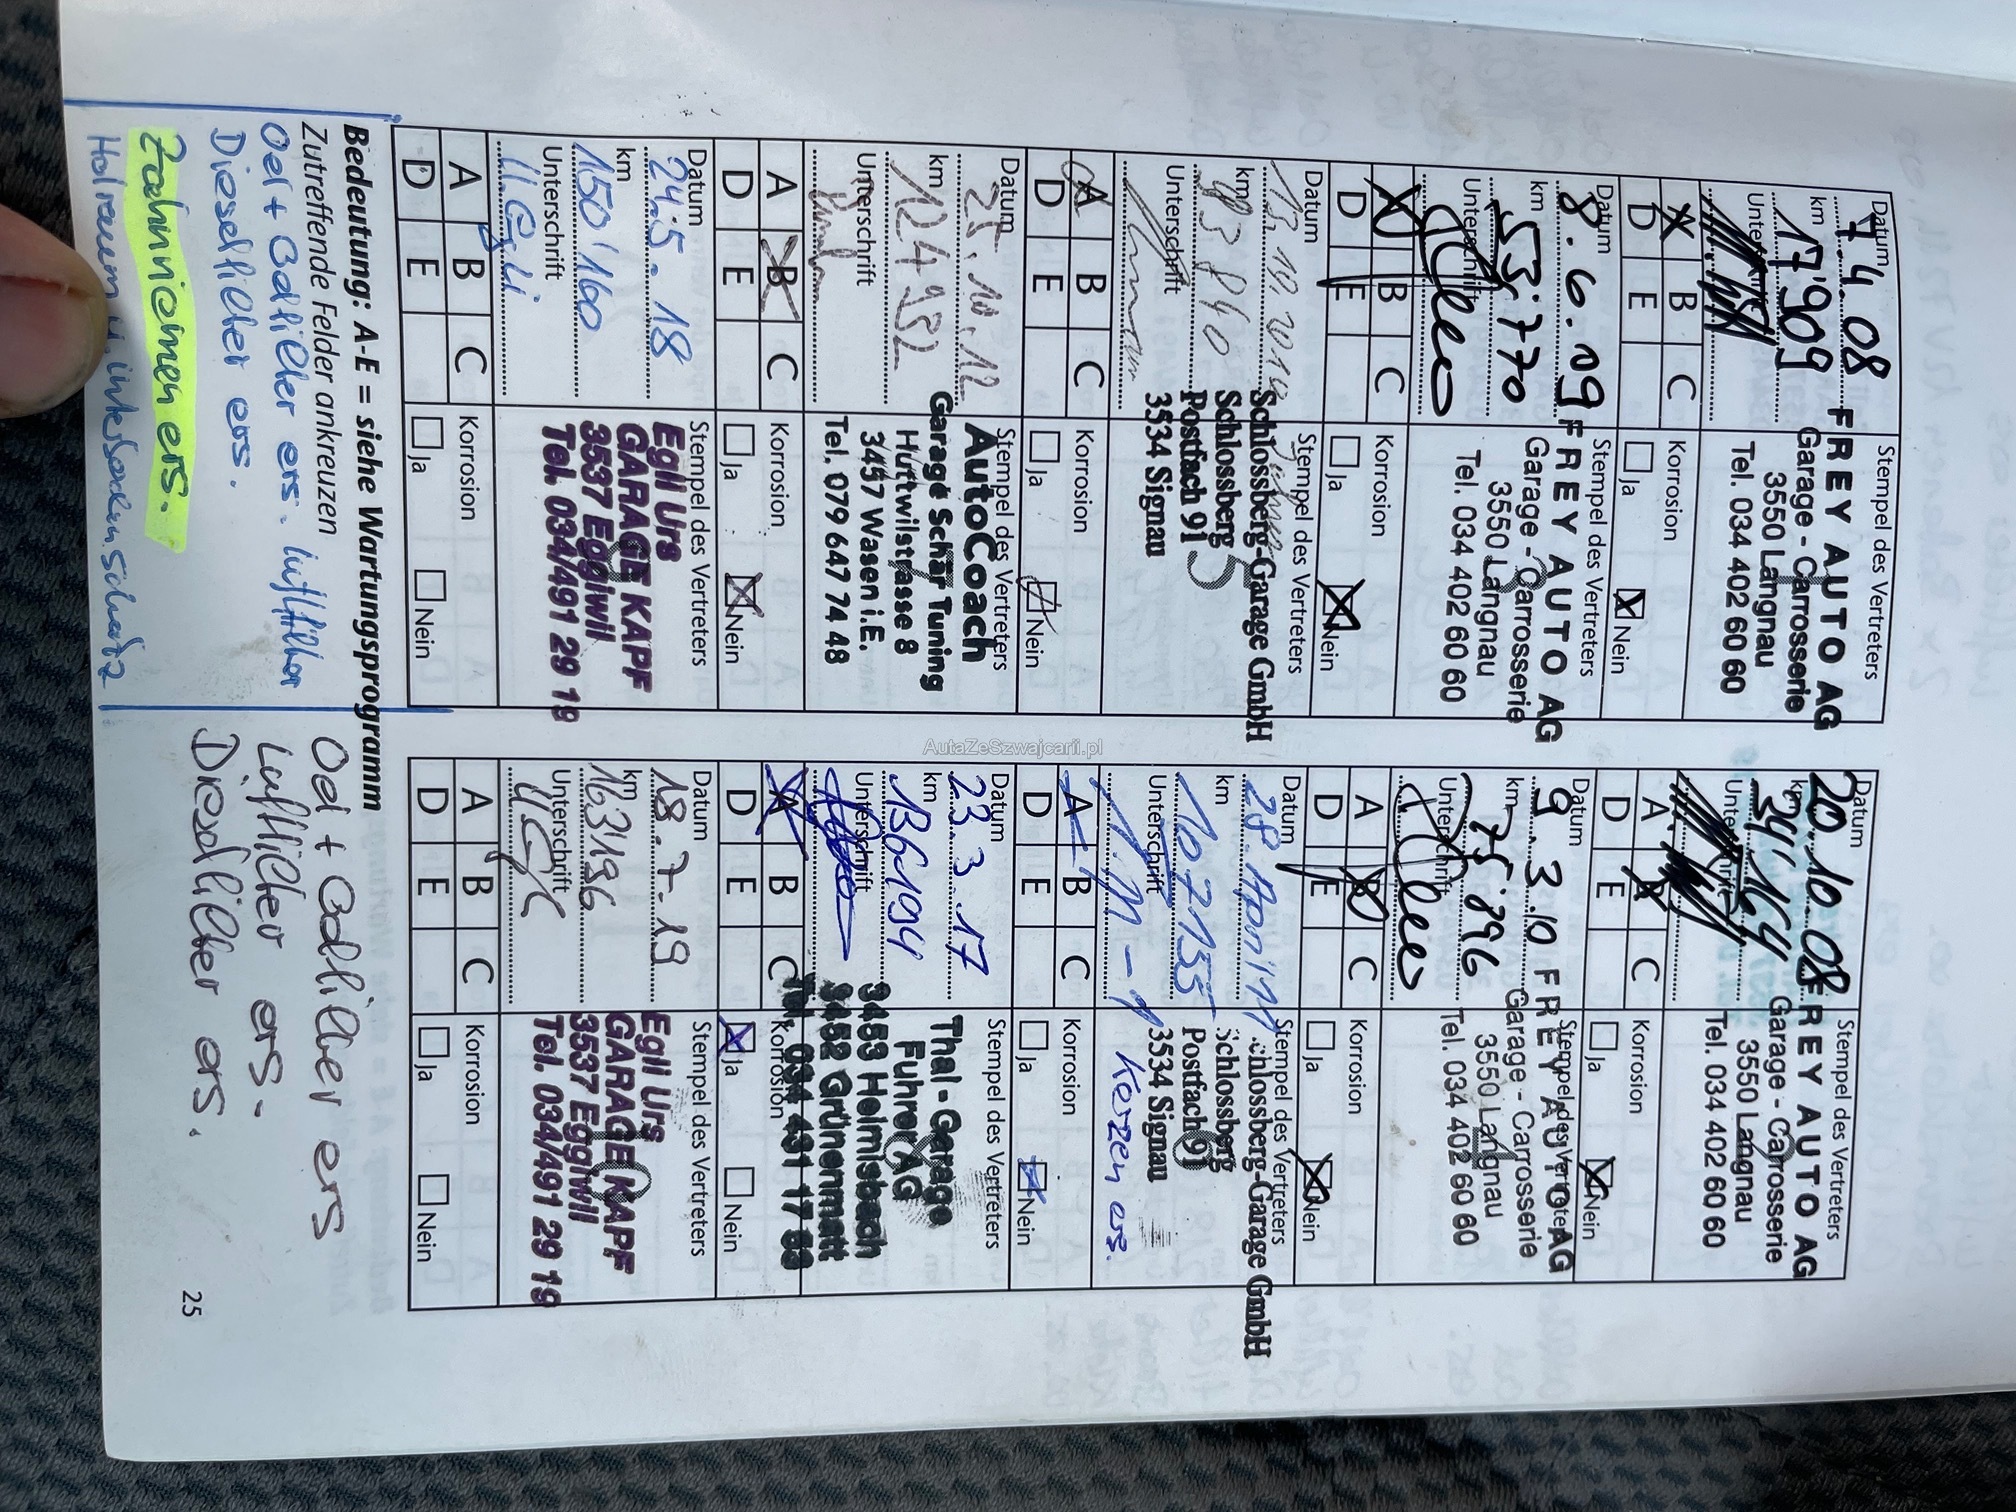 Datum
7.4.08
km
17'909
Stempel des Vertreters
FREY AUTO AG
Garage - Carrosserie
3550 Langnau
Tel. 034 402 60 60
A B C
D E
Korrosion
Ja Nein
Datum
20.10.08
km
34'164
Unterschrift
Stempel des Vertreters
FREY AUTO AG
Garage - Carrosserie
3550 Langnau
Tel. 034 402 60 60
A B C
D E
Korrosion
Ja Nein
Datum
8.6.09
km
53'770
Unterschrift
Stempel des Vertreters
FREY AUTO AG
Garage - Carrosserie
3550 Langnau
Tel. 034 402 60 60
A B C
D E
Korrosion
Ja Nein
Datum
9.3.10
km
75'896
Unterschrift
Stempel des Vertreters
FREY AUTO AG
Garage - Carrosserie
3550 Langnau
Tel. 034 402 60 60
A B C
D E
Korrosion
Ja Nein
Datum
km
93840
Unterschrift
Stempel des Vertreters
Schlossberg-Garage GmbH
Schlossberg
Postfach 91
3534 Signau
A B C
D E
Korrosion
Ja Nein
Datum
28. April 11
km
107135
Unterschrift
Stempel des Vertreters
Schlossberg-Garage GmbH
Schlossberg
Postfach 91
3534 Signau
Kerzen ers.
A B C
D E
Korrosion
Ja Nein
Datum
25.10.12
km
124952
Unterschrift
Stempel des Vertreters
AutoCoach
Garage Schär Tuning
Huttwilstrasse 8
3457 Wasen i.E.
Tel. 079 647 74 48
A B C
D E
Korrosion
Ja Nein
Datum
23.3.17
km
136194
Unterschrift
Stempel des Vertreters
Thal-Garage
Fuhrer AG
3453 Heimisbach
3452 Grünenmatt
Tel. 034 431 17 53
A B C
D E
Korrosion
Ja Nein
Datum
24.5.18
km
150'160
Unterschrift
U. Egli
Stempel des Vertreters
Egli Urs
GARAGE KAPF
3537 Eggiwil
Tel. 034/491 29 19
A B C
D E
Korrosion
Ja Nein
Datum
18.7.19
km
163196
Unterschrift
Stempel des Vertreters
Egli Urs
GARAGE KAPF
3537 Eggiwil
Tel. 034/491 29 19
A B C
D E
Korrosion
Ja Nein
Bedeutung: A-E = siehe Wartungsprogramm
Zutreffende Felder ankreuzen
Oel + Oelfilter ers. Luftfilter
Dieselfilter ers.
Zahnriemen ers.
Holraum u. Unterbodenschutz
Oel + Oelfilter ers
Luftfilter ers.
Dieselfilter ers.
25
AutaZeSzwajcarii.pl